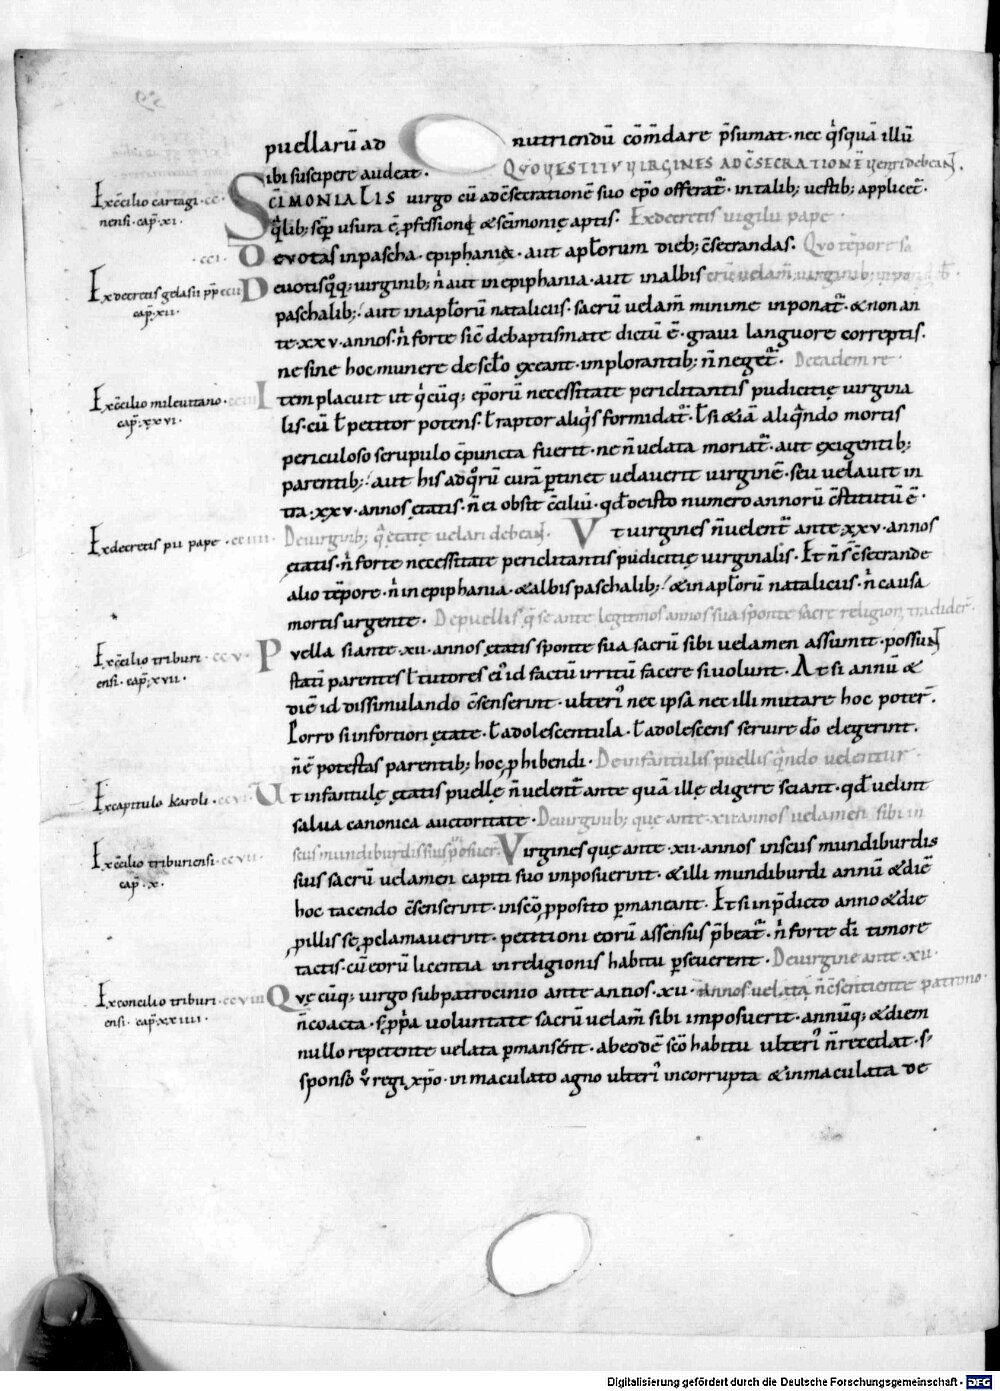 puellarū ad nutriendū cōm̄dare p̄sumat · nec q̇squā illū
sibi suscipere audeat · QVO VESTITV VIRGINES AD C̄SECRATIONĒ
Ex c̄cilio cartagi
nensi · cap̄ · xi ·
SC̄IMONIALIS virgo cū ad c̄secrationē suo ep̄o offerat᷒ · in talib; vestib; applicet᷒ ·
q̇lib; sēp usura ē ꝓfessioni & sc̄imonię aptis · Ex decretis vigilii pape ·
cci ·
Deuotas in pascha · epiphania · aut aptorum dieb; c̄secrandas · Quo tēpore
Ex decretis gelasii pp̄ ccii
cap̄ · xii ·
Deuotis q̇q; virginib; n̄ aut in epiphania · aut in albis
paschalib; aut in apłorū nataliciis · sacrū velam̄ minime inponat᷒ · & non an
te · xxv · annos · n̄ forte sic̄ de baptismate dictū ē · graui languore correptis ·
ne sine hoc munere de sc̄lo exeant · implorantib; n̄ neget᷒ · De eadem re ·
Ex c̄cilio mileuitano ·
cap̄ · xxvi ·
Item placuit ut q̇cūq; ep̄orū necessitate periclitantis pudicitię virgina
lis · cū ł petitor potens · ł raptor aliq̇s formidat᷒ · ł si & iā aliq̇ndo mortis
periculoso scrupulo c̄puncta fuerit · ne n̄ velata moriat᷒ · aut exigentib;
parentib; aut his ad q̊rū curā ꝑtinet velauerit virginē · seu velauit in
tra · xxv · annos ętatis · n̄ ei obsit c̄ciliū · qđ de isto numero annorū c̄stitutū ē ·
Ex decretis pii pape · cciiii ·
De virginib; q̄ ętate uelari debeant · Vt virgines n̄ velent᷒ ante xxv · annos
ętatis · n̄ forte necessitate periclitantis pudicitię virginalis · Et n̄ s̄ c̄secrande
alio tēpore · n̄ in epiphania · & albis paschalib; & in apłorū nataliciis · n̄ causa
mortis urgente · De puellis q̄ se ante legitimos annos sua sponte sacre religioni tradider̄ ·
Ex c̄cilio triburi · ccv ·
ensi · cap̄ · xvii ·
Puella si ante · xii · annos ętatis sponte sua sacrū sibi velamen assumit · possunt
stati parentes ł tutores ei᷒ id factū irritū facere si volunt · At si annū &
diē id dissimulando c̄senserint · ulteri᷒ nec ipsa nec illi mutare hoc poter̄ ·
Porro si in fortiori ętate · ł adolescentula · ł adolescens seruire dō elegerint ·
n̄ ē potestas parentib; hoc ꝓhibendi · De infantulis puellis q̇ndo velentur ·
Ex capitulo karoli · ccvi ·
Vt infantulę ętatis puellę n̄ velent᷒ ante quā illę eligere sciant · qđ velint
salua canonica auctoritate · De uirginib; que ante · xii · annos velamen sibi in
Ex c̄cilio triburiensi · ccvii ·
cap̄ · x ·
Virgines quę ante · xii · annos insciis mundiburdis
suis sacrū velamen capiti suo inposuerint · & illi mundiburdi annū & diē
hoc tacendo c̄senserint · in sc̄o ꝓposito ꝑmaneant · Et si in p̄dicto anno & die
ꝓ illis se ꝓclamauerint · petitioni eorū assensus p̄beat᷒ · n̄ forte di timore
tactis · cū eorū licentia in religionis habitu ꝑseuerent · De virgine ante · xii ·
Ex concilio triburi · ccviii
ensi · cap̄ · xxiiii ·
Quę cūq; virgo sub patrocinio ante annos · xii · annos velata n̄ c̄sentiente patrono ·
n̄ coacta · s; ꝓpa voluntate sacrū velam̄ sibi imposuerit · annūq; & diem
nullo repetente velata ꝑmanserit · ab eodē sc̄o habitu ulteri᷒ n̄ recedat · s;
sponso v̊ regi xp̄o · in maculato agno ulteri᷒ incorrupta & inmaculata de
Digitalisierung gefördert durch die Deutsche Forschungsgemeinschaft - DFG